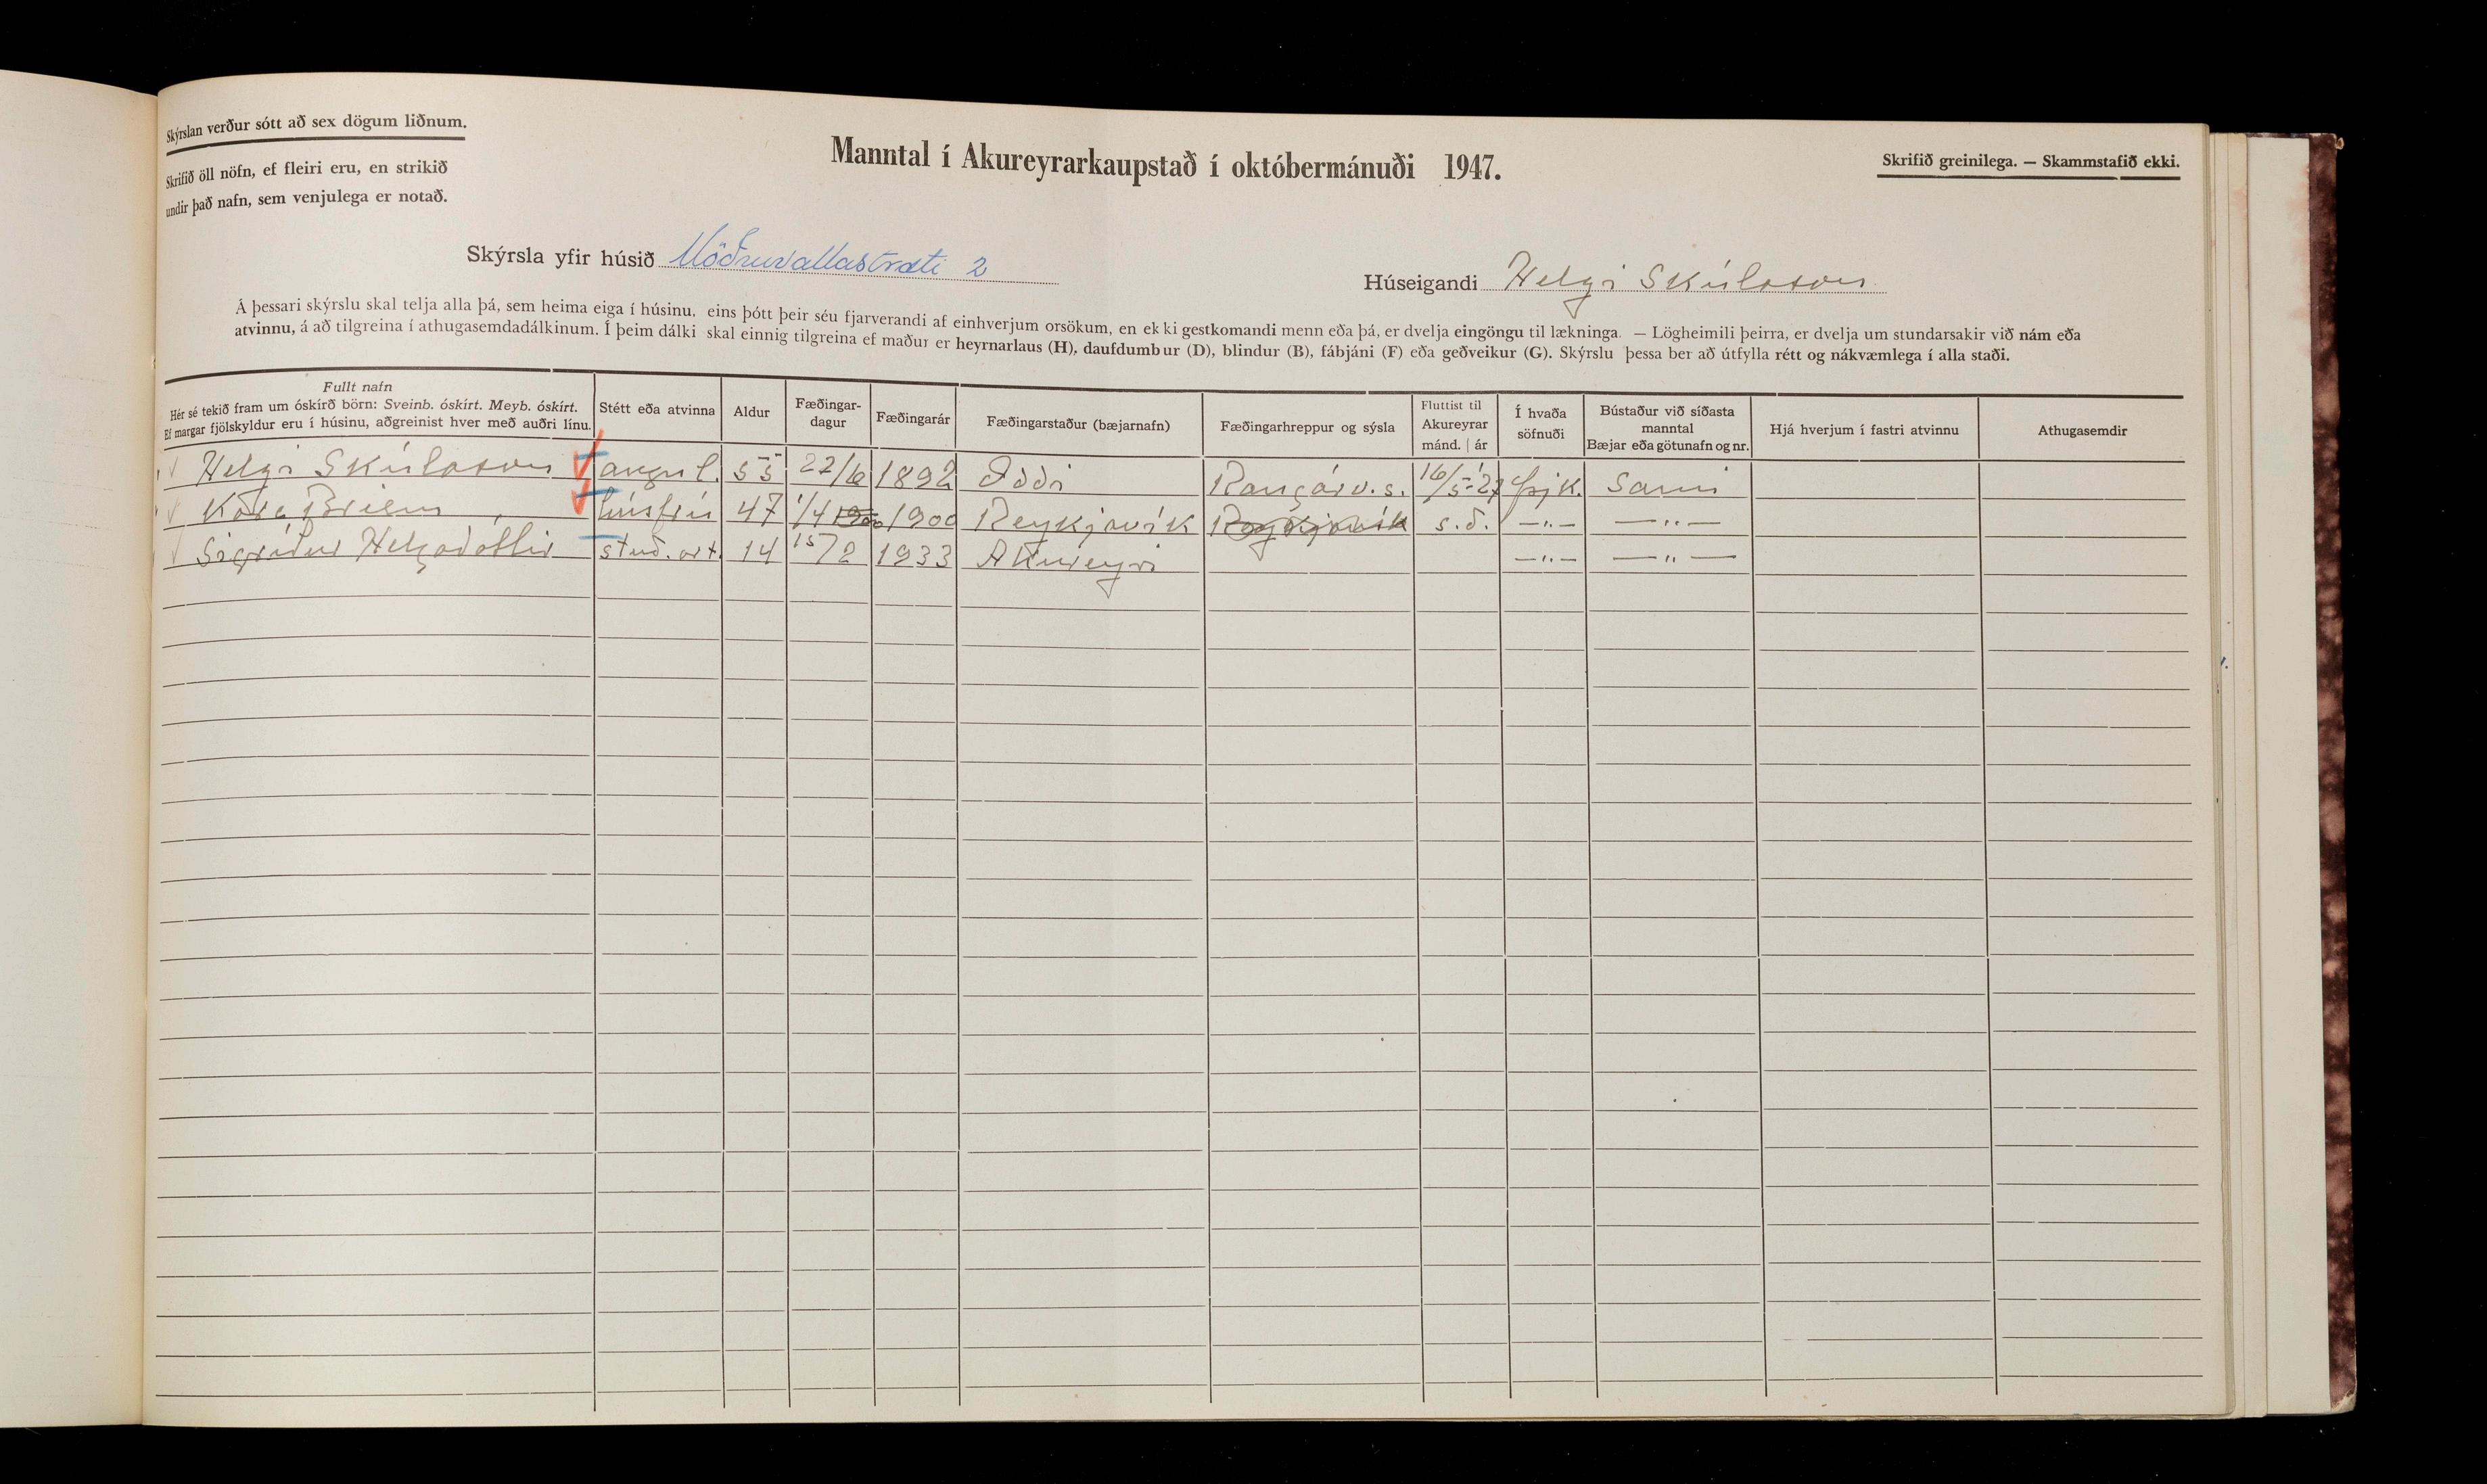 Skýrslan verður sótt að sex dögum liðnum.
Skrifið öll nöfn, ef fleiri eru, en strikið
undir það nafn, sem venjulega er notað.
Manntal í Akureyrarkaupstað í októbermánuði 1947.
Skrifið greinilega. — Skammstafið ekki.
Skýrsla yfir húsið Möðruvallastræti 2
Húseigandi Helgi Skúlason
Á þessari skýrslu skal telja alla þá, sem heima eiga í húsinu, eins þótt þeir séu fjarverandi af einhverjum orsökum, en ekki gestkomandi menn eða þá, er dvelja eingöngu til lækninga. — Lögheimili þeirra, er dvelja um stundarsakir við nám eða
atvinnu, á að tilgreina í athugasemdadálkinum. Í þeim dálki skal einnig tilgreina ef maður er heyrnarlaus (H), daufdumbur (D), blindur (B), fábjáni (F) eða geðveikur (G). Skýrslu þessa ber að útfylla rétt og nákvæmlega í alla staði.
Fullt nafn
Hér sé tekið fram um óskírð börn: Sveinb. óskírt. Meyb. óskírt.
Ef margar fjölskyldur eru í húsinu, aðgreinist hver með auðri línu.
Stétt eða atvinna
Aldur
Fæðingar-
dagur
Fæðingarár
Fæðingarstaður (bæjarnafn)
Fæðingarhreppur og sýsla
Fluttist til
Akureyrar
mánd. | ár
Í hvaða
söfnuði
Bústaður við síðasta
manntal
Bæjar eða götunafn og nr.
Hjá hverjum í fastri atvinnu
Athugasemdir
Helgi Skúlason augnl. 55 22/6 1892 Oddi Rangárv.s. 16/5-'27 þjk. Sami
Kara Briem húsfrú 47 1/4 1900 1900 Reykjavík Reykjavík s.d. —"— —"—
Sigríður Helgadóttir stud. art. 14 15/2 1933 Akureyri —"— —"—